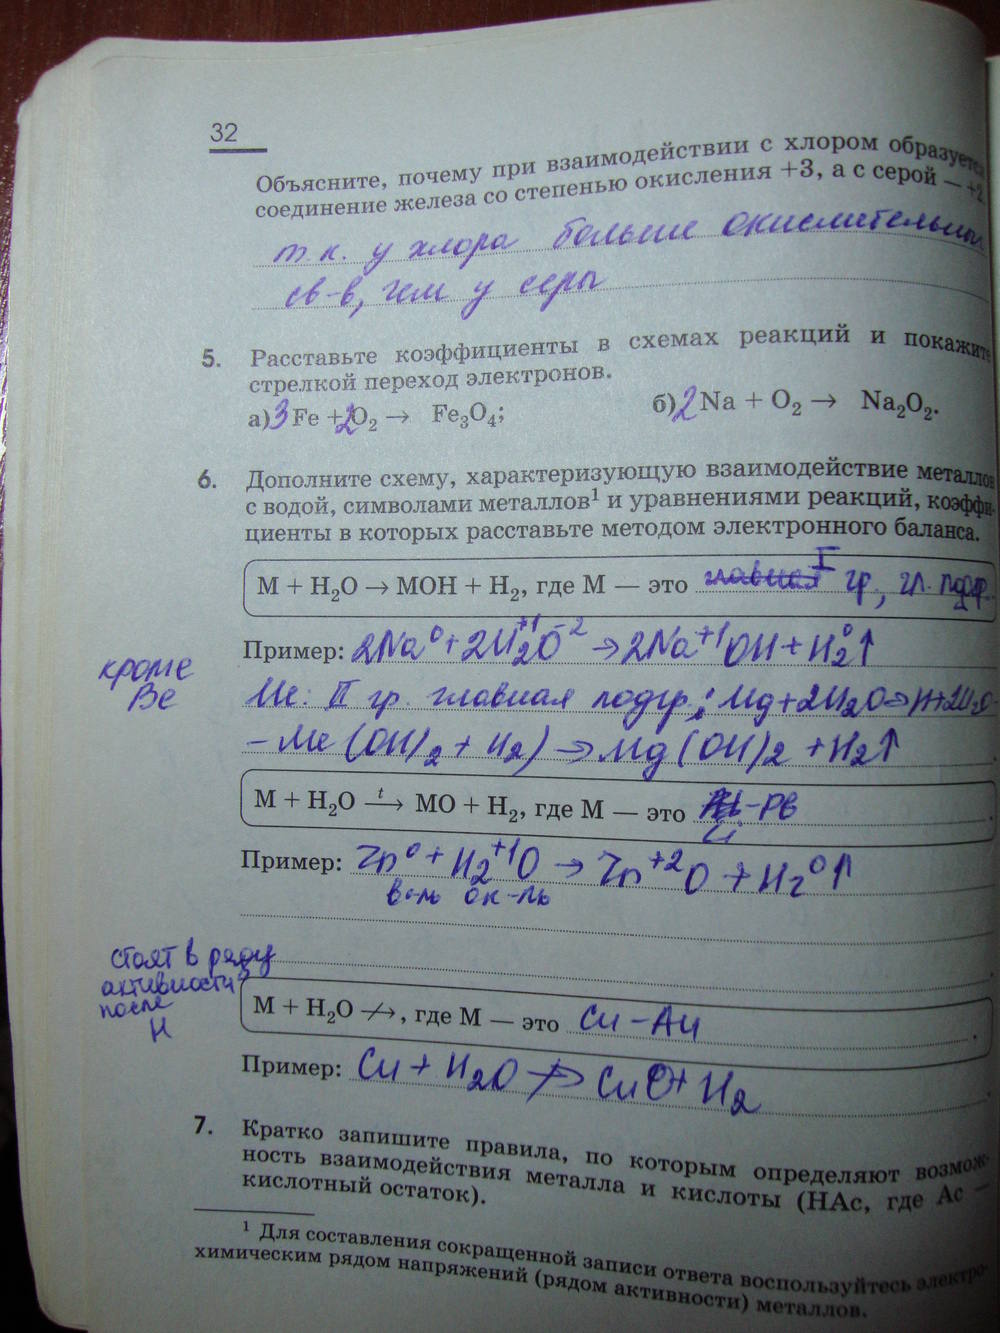 32
Объясните, почему при взаимодействии с хлором образуется
соединение железа со степенью окисления +3, а с серой — +2.
т.к. у хлора больше окислительных
св-в, чем у серы
5. Расставьте коэффициенты в схемах реакций и покажите
стрелкой переход электронов.
а) 3Fe + 2O₂ → Fe₃O₄; б) 2Na + O₂ → Na₂O₂.
6. Дополните схему, характеризующую взаимодействие металлов
с водой, символами металлов¹ и уравнениями реакций, коэффи-
циенты в которых расставьте методом электронного баланса.
M + H₂O → MOH + H₂, где M — это I гр, гл. подгр.
Пример: 2Na⁰ + 2H₂⁺¹O⁻² → 2Na⁺¹OH + H₂⁰↑
кроме
Be
Me: II гр. главная подгр.: Mg + 2H₂O →
– Me(OH)₂ + H₂) → Mg(OH)₂ + H₂↑
M + H₂O →ᵗ MO + H₂, где M — это Li - Pb
Пример: Zn⁰ + H₂⁺¹O → Zn⁺²O + H₂⁰↑
в-ль ок-ль
стоят в ряду
активности
после
H
M + H₂O ↛, где M — это Cu - Au
Пример: Cu + H₂O ↛ CuO + H₂
7. Кратко запишите правила, по которым определяют возмож-
ность взаимодействия металла и кислоты (HAc, где Ac —
кислотный остаток).
¹ Для составления сокращенной записи ответа воспользуйтесь электро-
химическим рядом напряжений (рядом активности) металлов.